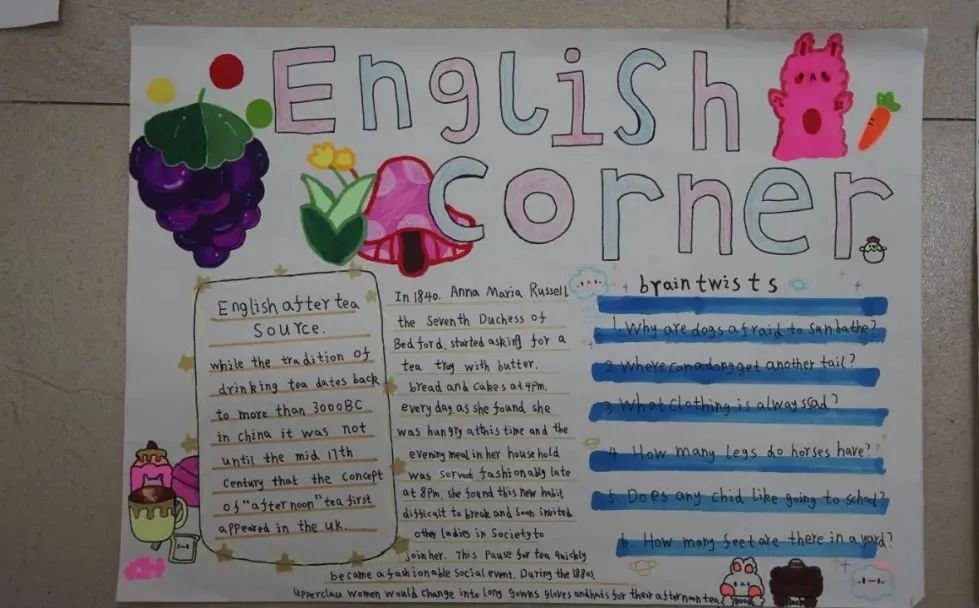 English
Corner
English after tea
source.
while the tradition of
drinking tea dates back
to more than 3000BC
in china it was not
until the mid 17th
century that the concept
of "afternoon" tea first
appeared in the uk.
In 1840. Anna Maria Russell
the Seventh Duchess of
Bedford, started asking for a
tea tray with butter.
bread and cakes at 4pm.
every day, as she found she
was hungry at this time and the
evening meal in her household
was served fashionably late
at 8pm. she found this new habit
difficult to break and soon invited
other ladies in society to
join her. This Pause for tea quickly
became a fashionable social event. During the 1880s.
upperclass women would change into long gowns gloves and hats for their afternoon tea
brain twists
1. Why are dogs afraid to sunbathe?
2. Where can a dong get another tail?
3. What clothing is always sad?
4. How many legs do horses have?
5. Does any chid like going to school?
6. How many feet are there in a yard?